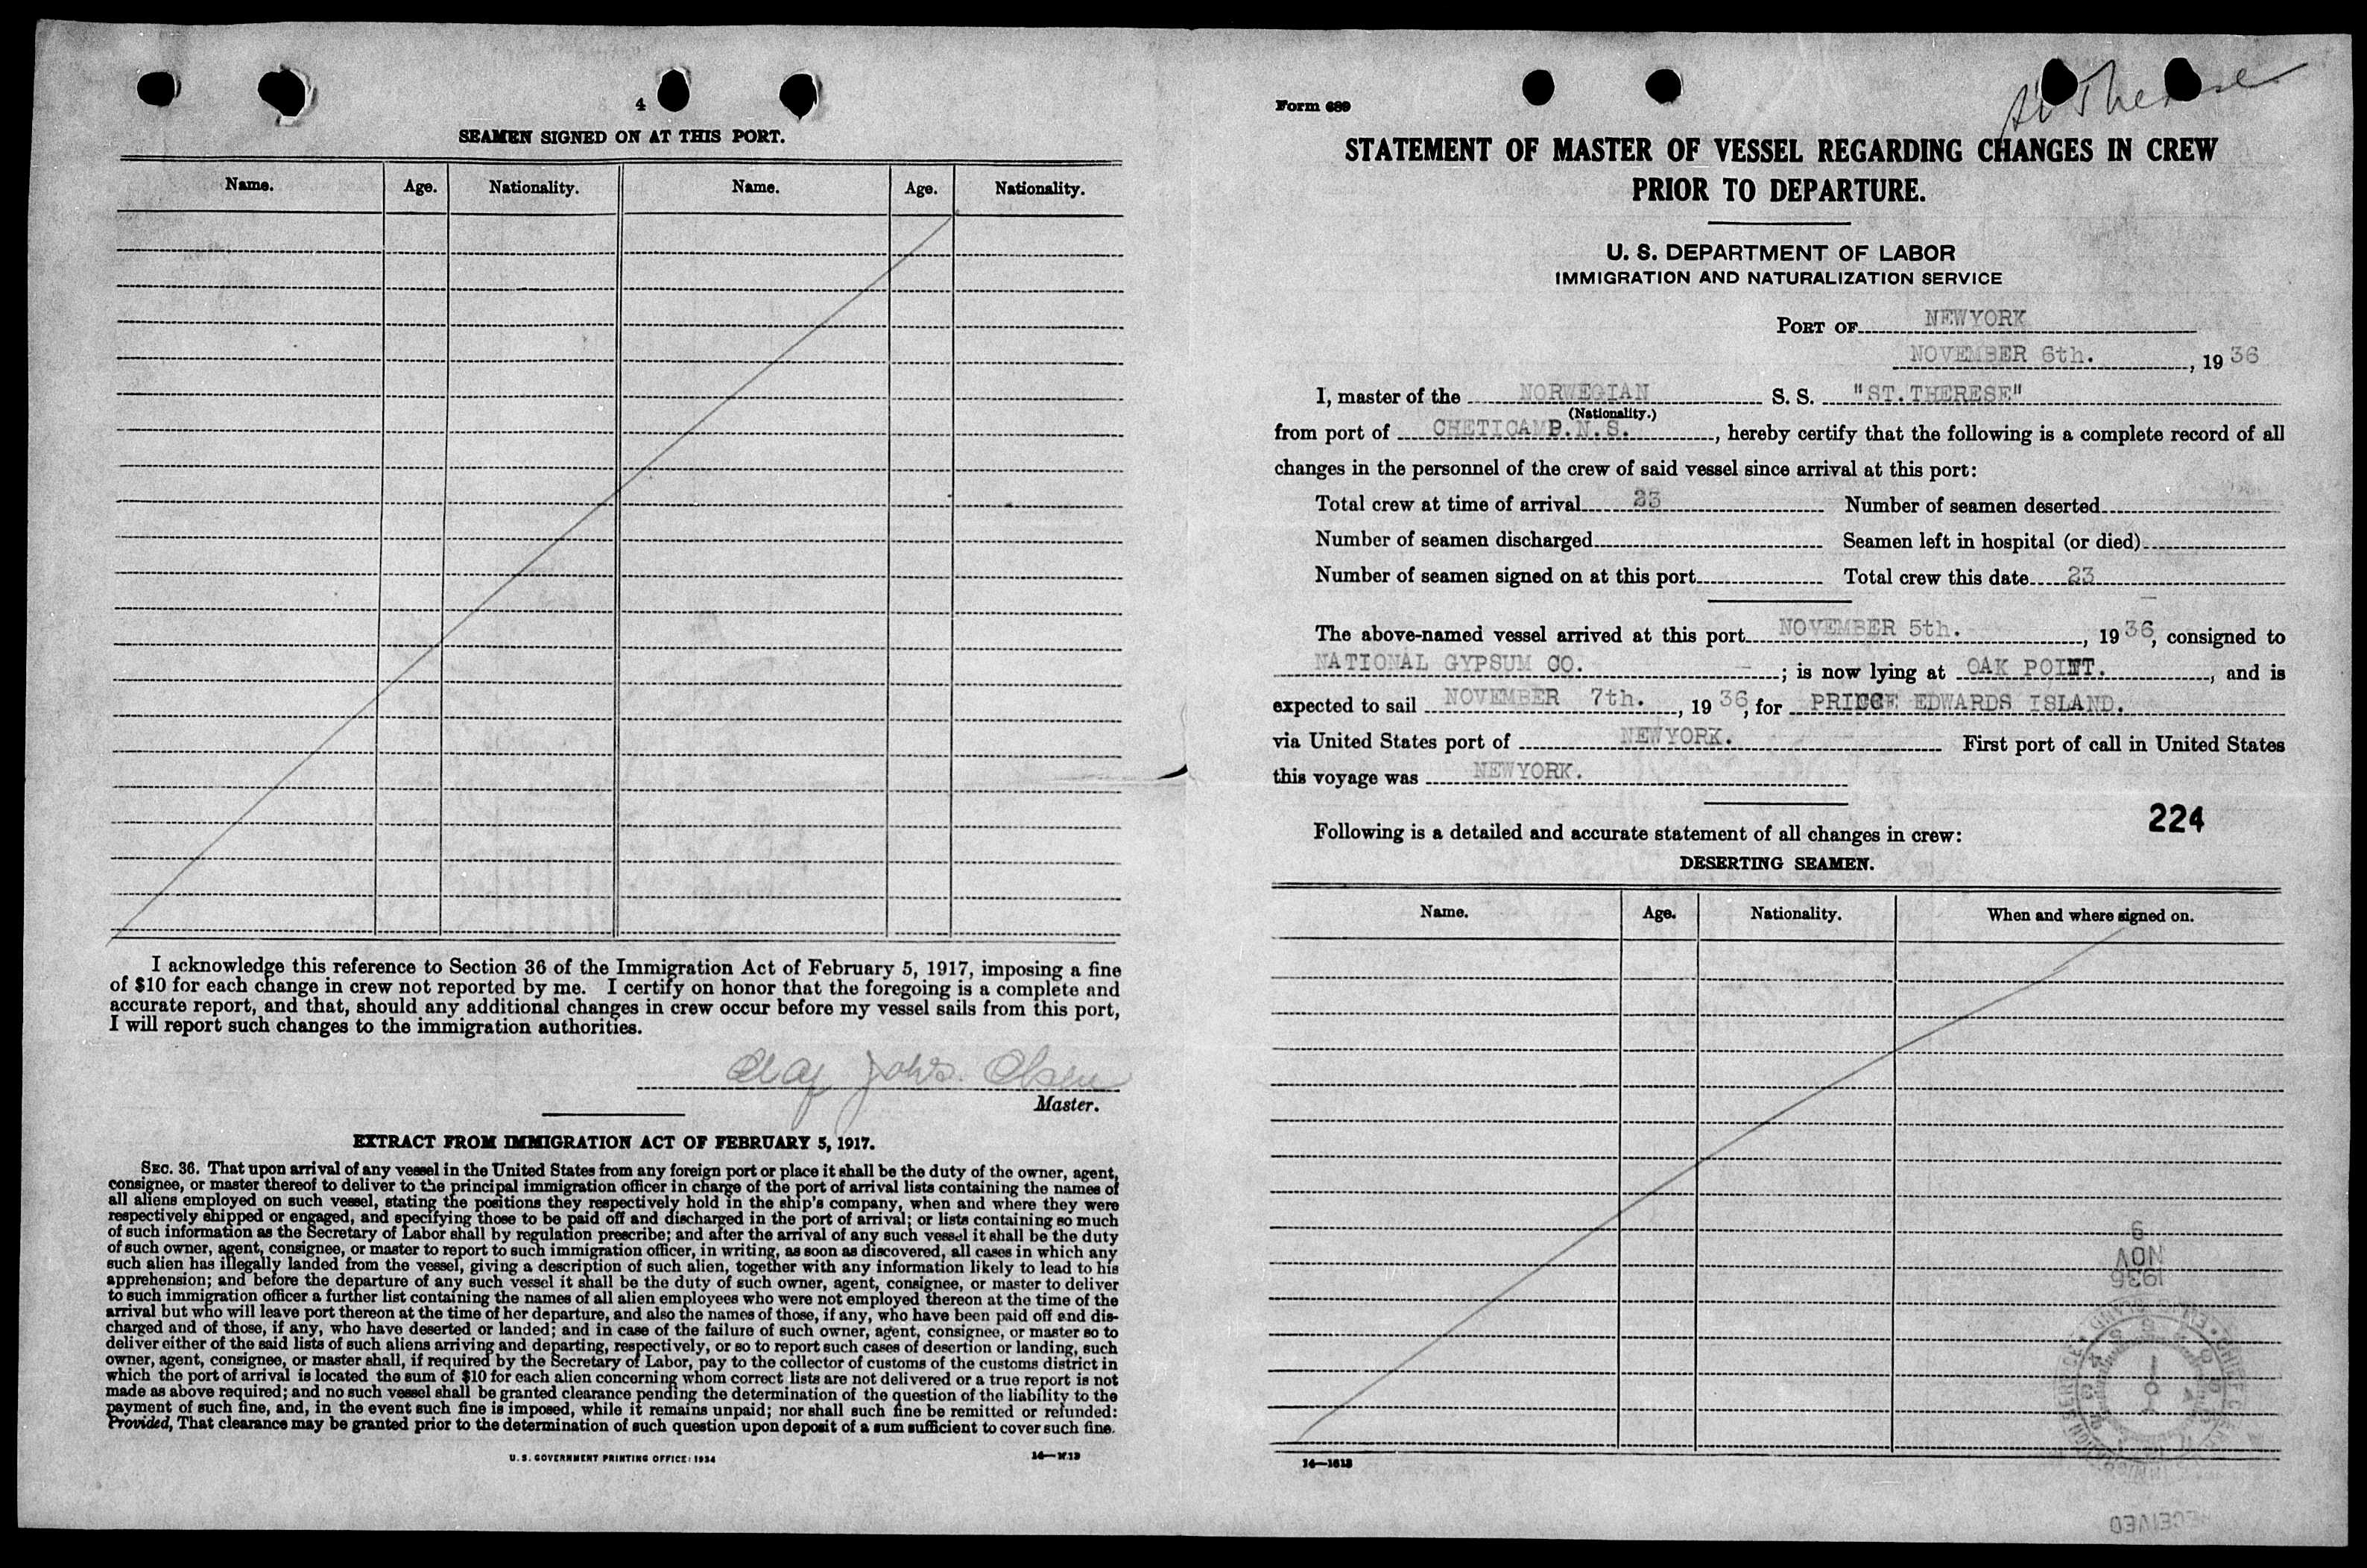 4
SEAMEN SIGNED ON AT THIS PORT.
Name. Age. Nationality. Name. Age. Nationality.
I acknowledge this reference to Section 36 of the Immigration Act of February 5, 1917, imposing a fine
of $10 for each change in crew not reported by me. I certify on honor that the foregoing is a complete and
accurate report, and that, should any additional changes in crew occur before my vessel sails from this port,
I will report such changes to the immigration authorities.
Olaf Johs. Olsen
Master.
EXTRACT FROM IMMIGRATION ACT OF FEBRUARY 5, 1917.
SEC. 36. That upon arrival of any vessel in the United States from any foreign port or place it shall be the duty of the owner, agent,
consignee, or master thereof to deliver to the principal immigration officer in charge of the port of arrival lists containing the names of
all aliens employed on such vessel, stating the positions they respectively hold in the ship's company, when and where they were
respectively shipped or engaged, and specifying those to be paid off and discharged in the port of arrival; or lists containing so much
of such information as the Secretary of Labor shall by regulation prescribe; and after the arrival of any such vessel it shall be the duty
of such owner, agent, consignee, or master to report to such immigration officer, in writing, as soon as discovered, all cases in which any
such alien has illegally landed from the vessel, giving a description of such alien, together with any information likely to lead to his
apprehension; and before the departure of any such vessel it shall be the duty of such owner, agent, consignee, or master to deliver
to such immigration officer a further list containing the names of all alien employees who were not employed thereon at the time of the
arrival but who will leave port thereon at the time of her departure, and also the names of those, if any, who have been paid off and dis-
charged and of those, if any, who have deserted or landed; and in case of the failure of such owner, agent, consignee, or master so to
deliver either of the said lists of such aliens arriving and departing, respectively, or so to report such cases of desertion or landing, such
owner, agent, consignee, or master shall, if required by the Secretary of Labor, pay to the collector of customs of the customs district in
which the port of arrival is located the sum of $10 for each alien concerning whom correct lists are not delivered or a true report is not
made as above required; and no such vessel shall be granted clearance pending the determination of the question of the liability to the
payment of such fine, and, in the event such fine is imposed, while it remains unpaid; nor shall such fine be remitted or refunded:
Provided, That clearance may be granted prior to the determination of such question upon deposit of a sum sufficient to cover such fine.
U. S. GOVERNMENT PRINTING OFFICE: 1934
Form 689
St Therese
STATEMENT OF MASTER OF VESSEL REGARDING CHANGES IN CREW
PRIOR TO DEPARTURE.
U. S. DEPARTMENT OF LABOR
IMMIGRATION AND NATURALIZATION SERVICE
PORT OF NEWYORK
NOVEMBER 6th., 1936
I, master of the NORWEGIAN S. S. "ST.THERESE"
(Nationality.)
from port of CHETICAMP.N.S., hereby certify that the following is a complete record of all
changes in the personnel of the crew of said vessel since arrival at this port:
Total crew at time of arrival 23 Number of seamen deserted
Number of seamen discharged Seamen left in hospital (or died)
Number of seamen signed on at this port Total crew this date 23
The above-named vessel arrived at this port NOVEMBER 5th., 1936, consigned to
NATIONAL GYPSUM CO. ; is now lying at OAK POINT., and is
expected to sail NOVEMBER 7th., 1936, for PRINCE EDWARDS ISLAND.
via United States port of NEWYORK. First port of call in United States
this voyage was NEWYORK.
224
Following is a detailed and accurate statement of all changes in crew:
DESERTING SEAMEN.
Name. Age. Nationality. When and where signed on.
9
NOV
1936
14—1613